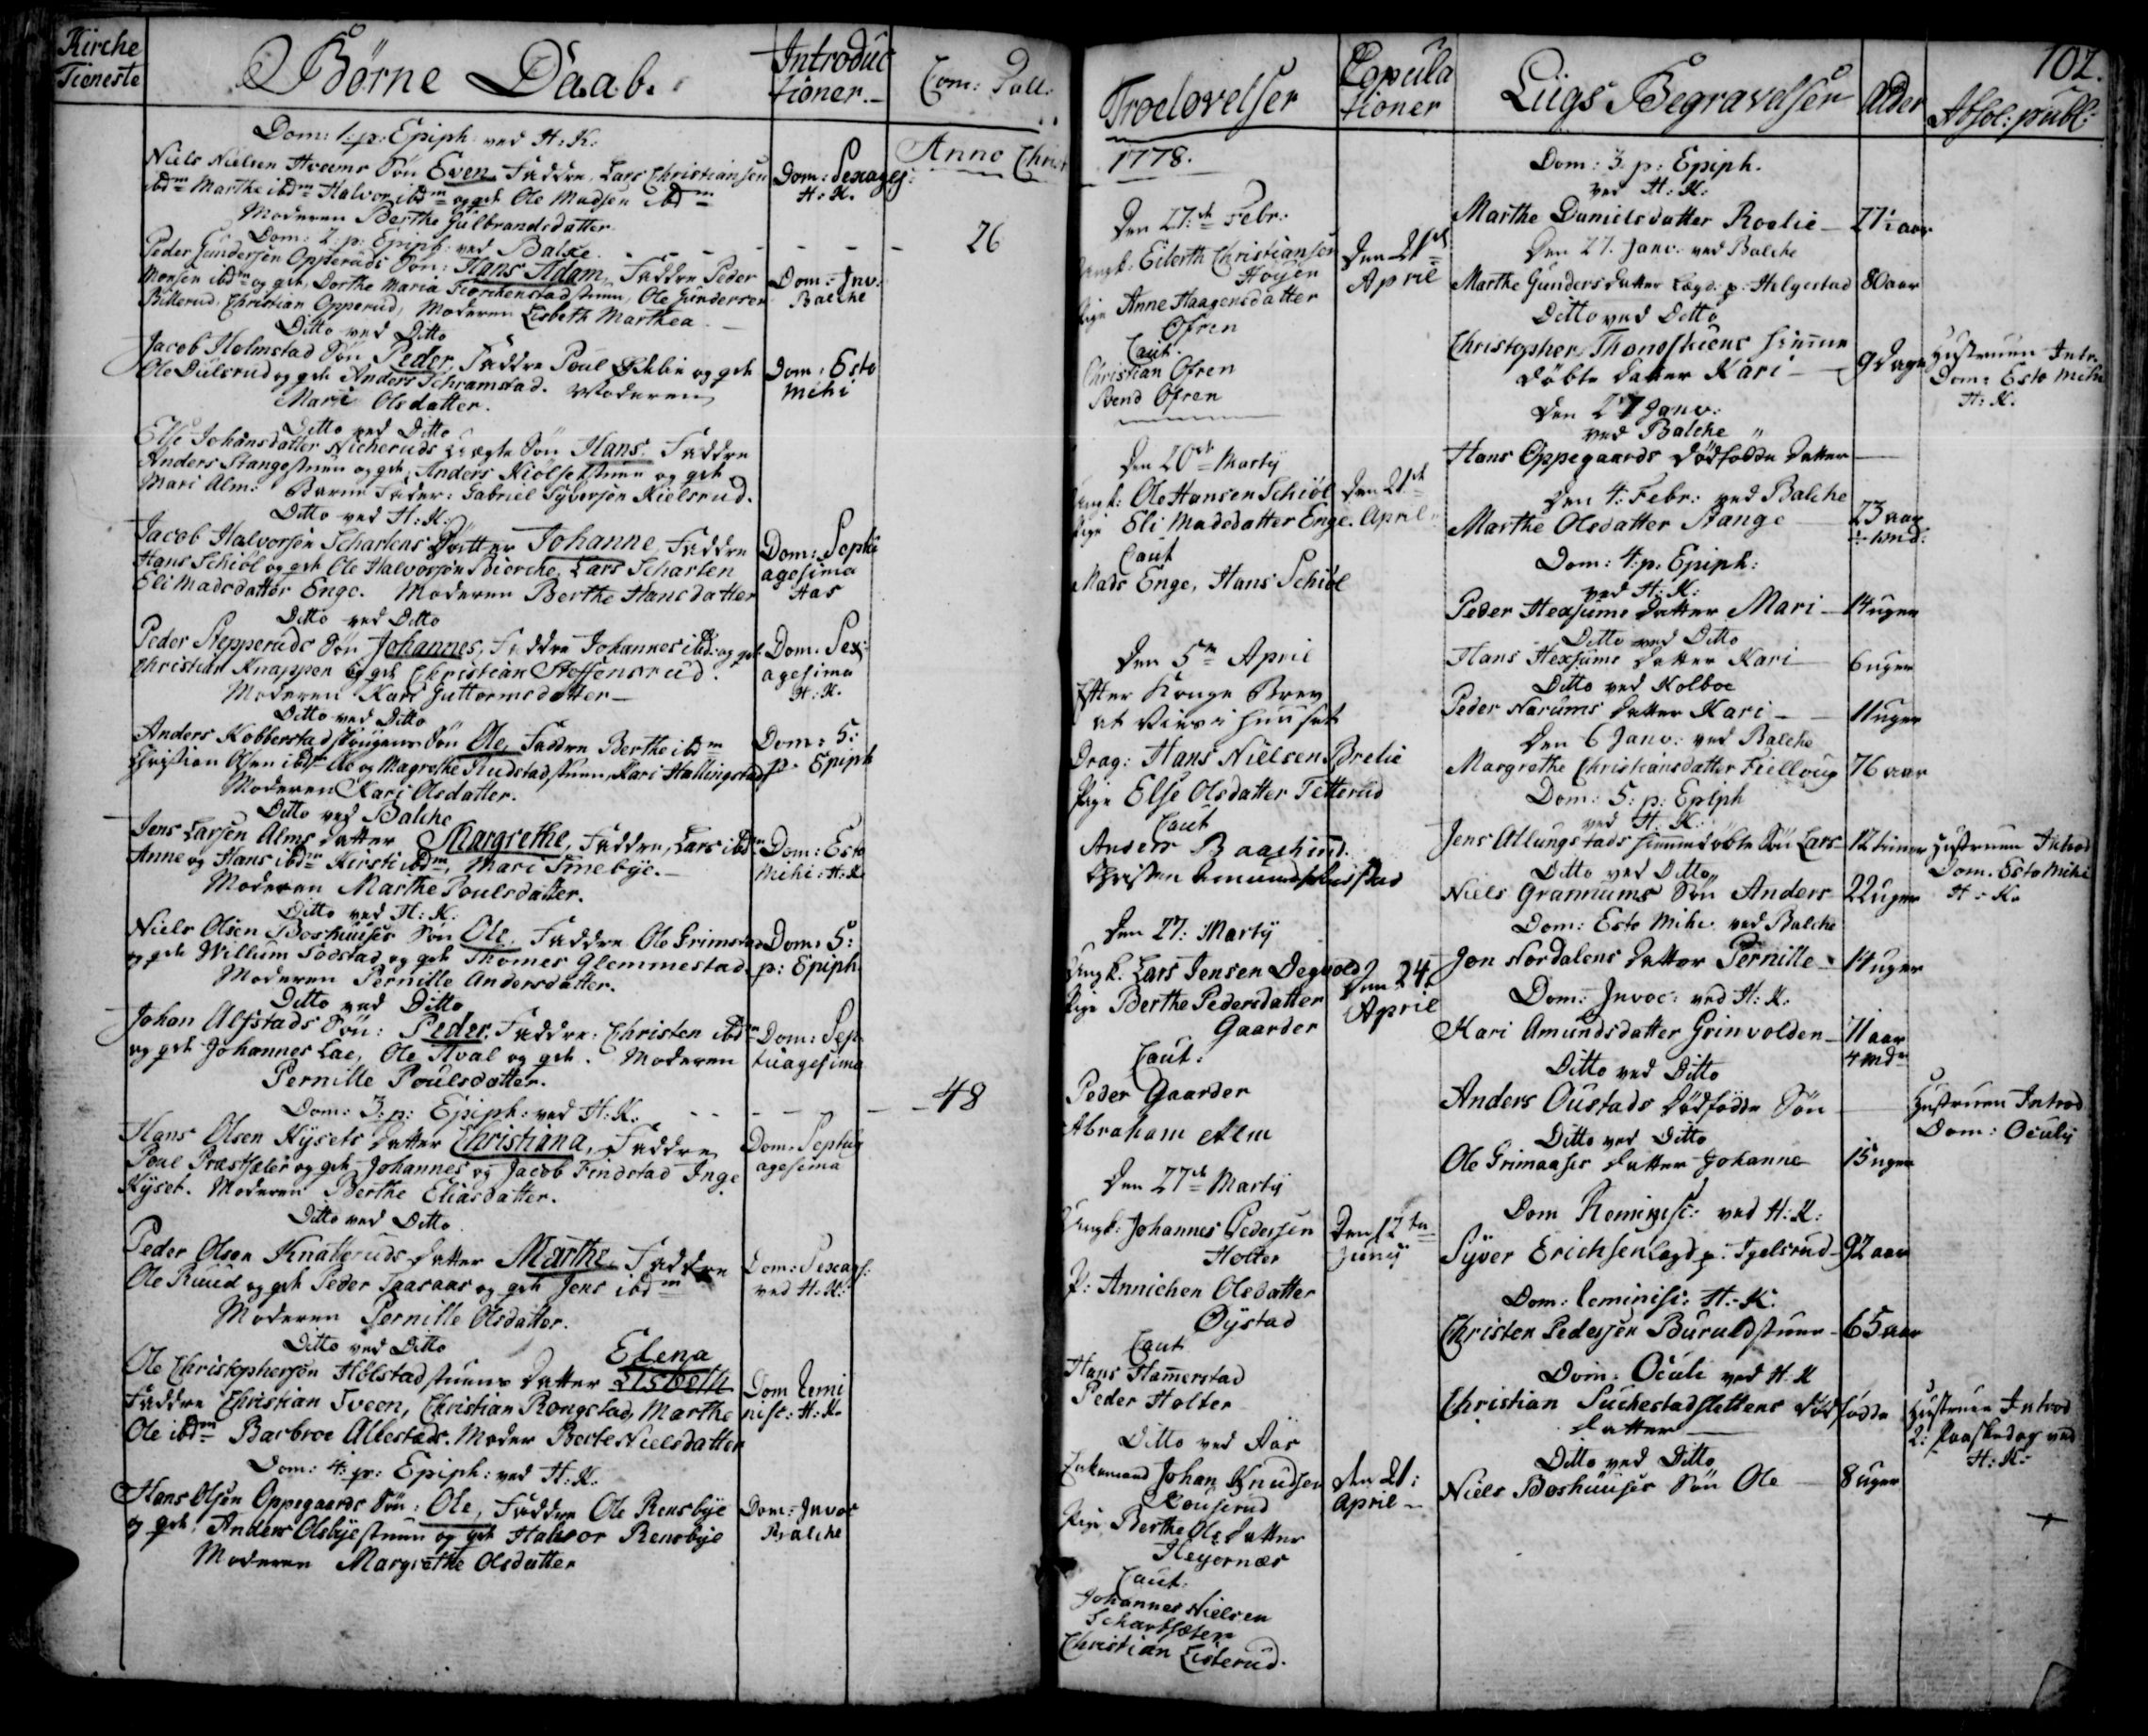 Kirche
Tieneste
Børne Daab.
Introduc
tioner.
Com: Pall:
Dom: 1: p: Epiph: ved H: K:
Niels Nielsen Hveems Søn Even, Faddre, Lars Christiansen
ibdm Marthe ibdm Halvor ibdm og gdt Ole Madsen ibdm
Moderen Berthe Gulbrandsdatter
Dom: Sexages:
H: K.
Anno Christ
Dom: 2: p: Epiph: ved Balke
26
Peder Gundersen Opperuds Søn: Hans Adam, Faddre Peder
Monsen ibdm og gdt, Dorthe Maria stuen, Ole Gundersen
Billerud, Christian Opperud, Moderen Lisbeth Marthea
Dom: Inv:
Balche
Ditto ved Ditto
Jacob Holmstad Søn Peder, Faddre Poul Eklie og gdt
Ole Dulsrud og gdt Anders Schramstad. Moderen
Mari Olsdatter.
Dom: Esto
mihi
Ditto ved Ditto
Else Johansdatter Nicheruds uægte Søn Hans. Faddre
Anders Stangestuen og gdt, Anders Kiølsetstuen og gdt
Mari Alm: Barne Fader: Gabriel Syversen Kielsrud.
Ditto ved H: K:
Jacob Halvorsen Schartens Datter Johanne, Faddre
Hans Schiøl og gdt Ole Halvorsøn Bierche, Lars Scharten
Eli Madsdatter Enge. Moderen Berthe Hansdatter
Dom: Septu
agesima
Aas
Ditto ved Ditto
Peder Stepperuds Søn Johannes, Faddre Johannes ibd: og gdt
Christian Knappen og gdt Christian Steffensrud.
Moderen Kari Guttormsdatter
Dom: Sex
agesima
H: K.
Ditto ved Ditto
Anders Kobberstadshougens Søn Ole, Faddre Berthe ibdm
Christian Olsen ibdm Ole og Magrethe Rudstadstuen, Kari Hallingstad
Moderen Kari Olsdatter.
Dom: 5:
p: Epiph
Ditto ved Balche
Jens Larsen Alms Datter Margrethe, Faddre, Lars ibdm
Anne og Hans ibdm Kirsti ibdm, Mari Smebye.
Moderen Marthe Poulsdatter.
Dom: Esto
Mihi: H: K.
Ditto ved H: K:
Niels Olsen Boshuuses Søn Ole, Faddre Ole Grimstad
og gdt Willum Sodstad og gdt Thomes Glemmestad.
Moderen Pernille Andersdatter.
Dom: 5:
p: Epiph.
Ditto ved Ditto
Johan Alfstads Søn: Peder, Faddre: Christen ibdm
og gdt Johannes Lae, Ole Hval og gdt. Moderen
Pernille Poulsdatter.
Dom: Sep
tuagesima
Dom: 3: p: Epiph: ved H: K:
48
Hans Olsen Kysets Datter Christiana, Faddre
Poul Præstsæter og gdt Johannes og Jacob Findstad Inge
Kyset. Moderen Berthe Eliasdatter.
Dom: Septu
agesima
Ditto ved Ditto
Peder Olsen Knatteruds Datter Marthe Faddre
Ole Ruud og gdt Peder Saaraas og gdt Jens ibdm
Moderen Pernille Olsdatter.
Dom: Sexag:
ved H: K:
Ditto ved Ditto
Elena
Ole Christophersøn Hølstadstuens Datter Lisbeth
Faddre Christian Tveen, Christian Rongstad, Marthe
Ole ibdm Barbroe Allestad. Moder Berte Nielsdatter
Dom Remi
nisc: H: K.
Dom: 4: p: Epiph: ved H: K:
Hans Olsen Oppegaards Søn: Ole, Faddre Ole Rensbye
og gdt: Anders Olsbyestuen og gdt Halvor Rensbye
Moderen Margrethe Olsdatter
Dom: Invoc
Balche
Trolovelser
Copula
tioner
1778.
Den 27de Febr:
Ungk: Eilerth Christiansen
Høyen
Pige Anne Haagensdatter
Ofren
Caut:
Christian Ofren
Svend Ofren
Den 21de
April
Den 20de Martij
Ungk: Ole Hansen Schiøl
Pige Eli Madsdatter Enge.
Caut
Mads Enge, Hans Schiøl
Den 21de
April
Den 5te April
Efter Konge Brev
at vies i Huuset
Drag: Hans Nielsen Brelie
Pige Else Olsdatter Tetterud
Caut
Anders Baashuud.
Den 27: Martij
Ungk. Lars Jensen Degvold
Pige Berthe Pedersdatter
Gaarder
Caut:
Peder Gaarder
Abraham Alm
Den 24
April
Den 27de Martij
Ungk: Johannes Pedersen
Holter
P: Annichen Olsdatter
Øystad
Caut
Hans Hamerstad
Peder Holter
Den 12te
Junij
Ditto ved Aas
Enkemand Johan Knudsen
Rouserud
Pige Berthe Olsdatter
Heyernæs
Caut:
Johannes Nielsen
Schartsæter
Christian Listerud.
Den 21:
April
Liigs Begravelser
Alder
Absol: publ:
102.
Dom: 3: p: Epiph.
ved H: K:
Marthe Danielsdatter Roelie 77½ aar
Den 27. Janv: ved Balche
Marthe Gundersdatter Lægd: p: Helgestad 80 aar
Ditto ved Ditto
Christopher Thonstuens hieme
døbte Datter Kari 9 Dage
Hustruen Intr.
Dom: Esto Mihi
H: K.
Den 27 Janv:
ved Balche
Hans Oppegaards dødfødde Datter
Den 4: Febr: ved Balche
Marthe Olsdatter Stange 23 aar
Dom: 4: p: Epiph:
ved H: K:
Peder Hexums Datter Mari 14 uger
Ditto ved Ditto
Hans Hexums Datter Kari 6 uger
Ditto ved Kolboe
Peder Narums Datter Kari 11 uger
Den 6 Janv: ved Balche
Margrethe Christiansdatter Fielloug 76 aar
Dom: 5: p: Epiph
ved H. K:
Jens Allungstads hiemedøbte Søn Lars 12 timer
Hustruen Introd
Dom. Esto Mihi
H: K.
Ditto ved Ditto
Niels Grannums Søn Anders 22 uger
Dom: Esto Mihi ved Balche
Jon Nordalens Datter Pernille 14 uger
Dom: Invoc: ved H: K:
Kari Amundsdatter Grinvolden 11 aar
4 Mdr
Ditto ved Ditto
Anders Oustads dødfødde Søn
Hustruen Introd
Dom: Oculij
Ditto ved Ditto
Ole Grimaases Datter Johanne 15 uger
Dom Reminisc: ved H: K:
Syver Erichsen Lægd p: Igelsrud 92 aar
Dom: Reminisc: H: K.
Christen Pedersen Buruldstuen 65 aar
Dom: Oculi ved H: K
Christian Suchestadslettens dødfødde
Datter
Hustruen Introd
2: Paaskedag ved
H: K:
Ditto ved Ditto
Niels Boshuuses Søn Ole 8 uger